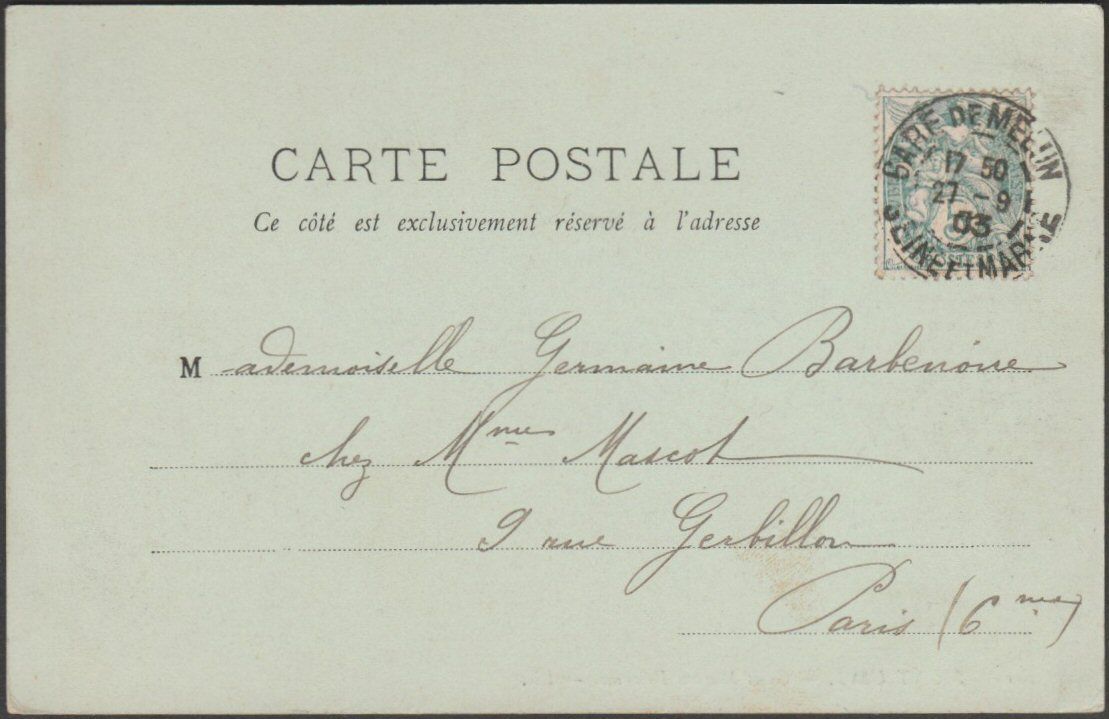 CARTE POSTALE
Ce côté est exclusivement réservé à l'adresse
GARE DE MELUN
17 50
27 - 9
03
SEINE ET MARNE
Mademoiselle Germaine
chez Mme Mascot
9 rue Gerbillon
Paris (6me)